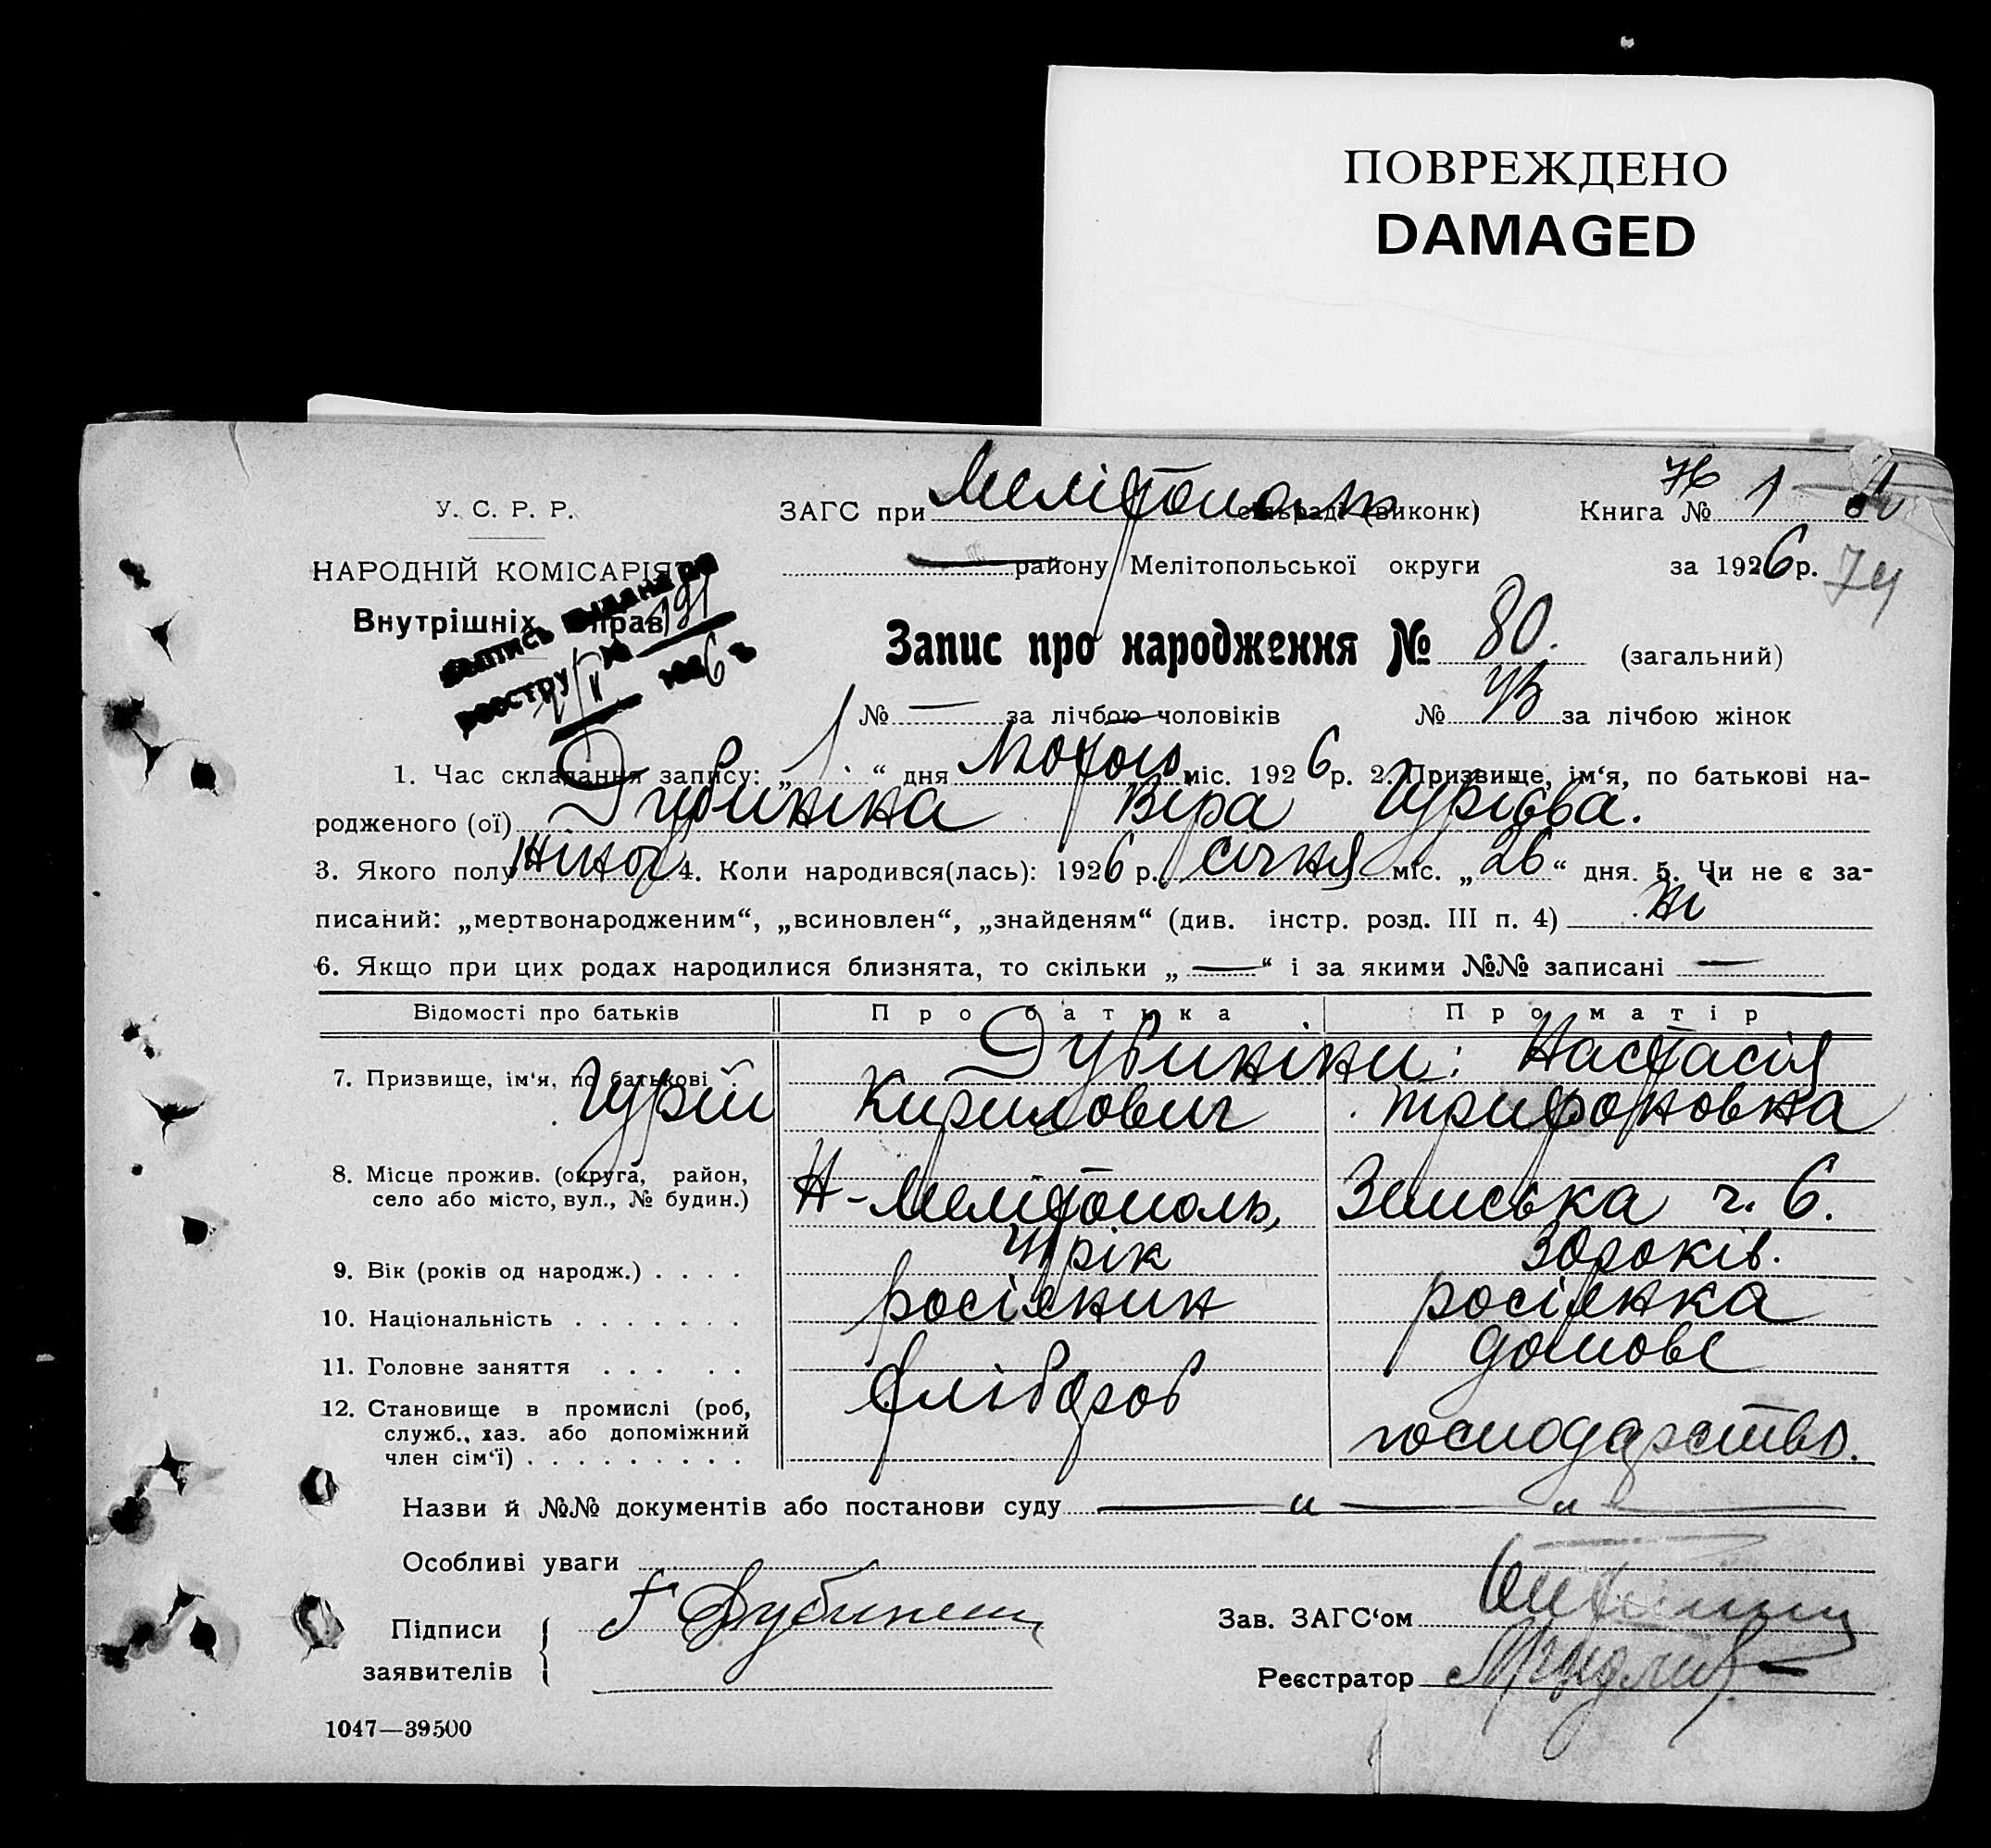 ПОВРЕЖДЕНО
DAMAGED
У. С. Р. Р.
НАРОДНІЙ КОМІСАРІЯТ
Внутрішніх Справ
ЗАГС при Мелітополь сільраді (виконк)
району Мелітопольської округи
Книга № 1
за 1926 р. 74
Запис про народження № 80. (загальний)
№ — за лічбою чоловіків № за лічбою жінок
1. Час складання запису: „1.“ дня Лютого міс. 1926 р. 2. Призвище, ім‘я, по батькові на-
родженого (ої) Дубиніна Віра Гурієва.
3. Якого полу жіноч 4. Коли народився(лась): 1926 р. січня міс. „26“ дня. 5. Чи не є за-
писаний: „мертвонародженим“, „всиновлен“, „знайденям“ (див. інстр. розд. III п. 4) ні
6. Якщо при цих родах народилися близнята, то скільки „—“ і за якими №№ записані —
Відомості про батьків Про батька Про матір
7. Призвище, ім‘я, по батькові . . Дубиніни: Настасія
Гурій Кирилович Трифоновна
8. Місце прожив. (округа, район,
село або місто, вул., № будин.) Н-Мелітополь, Земська ч. 6.
9. Вік (років од народж.) . . . . рік 30 років.
10. Національність . . . . . . . росіянин росіянка
11. Головне заняття . . . . . хлібороб домове
12. Становище в промислі (роб,
служб., хаз. або допоміжний
член сім‘ї) . . . . . . . . . господарство.
Назви й №№ документів або постанови суду — „ — „ —
Особливі уваги
Підписи
заявителів
Г Дубинин
Зав. ЗАГС‘ом
Реєстратор
1047—39500